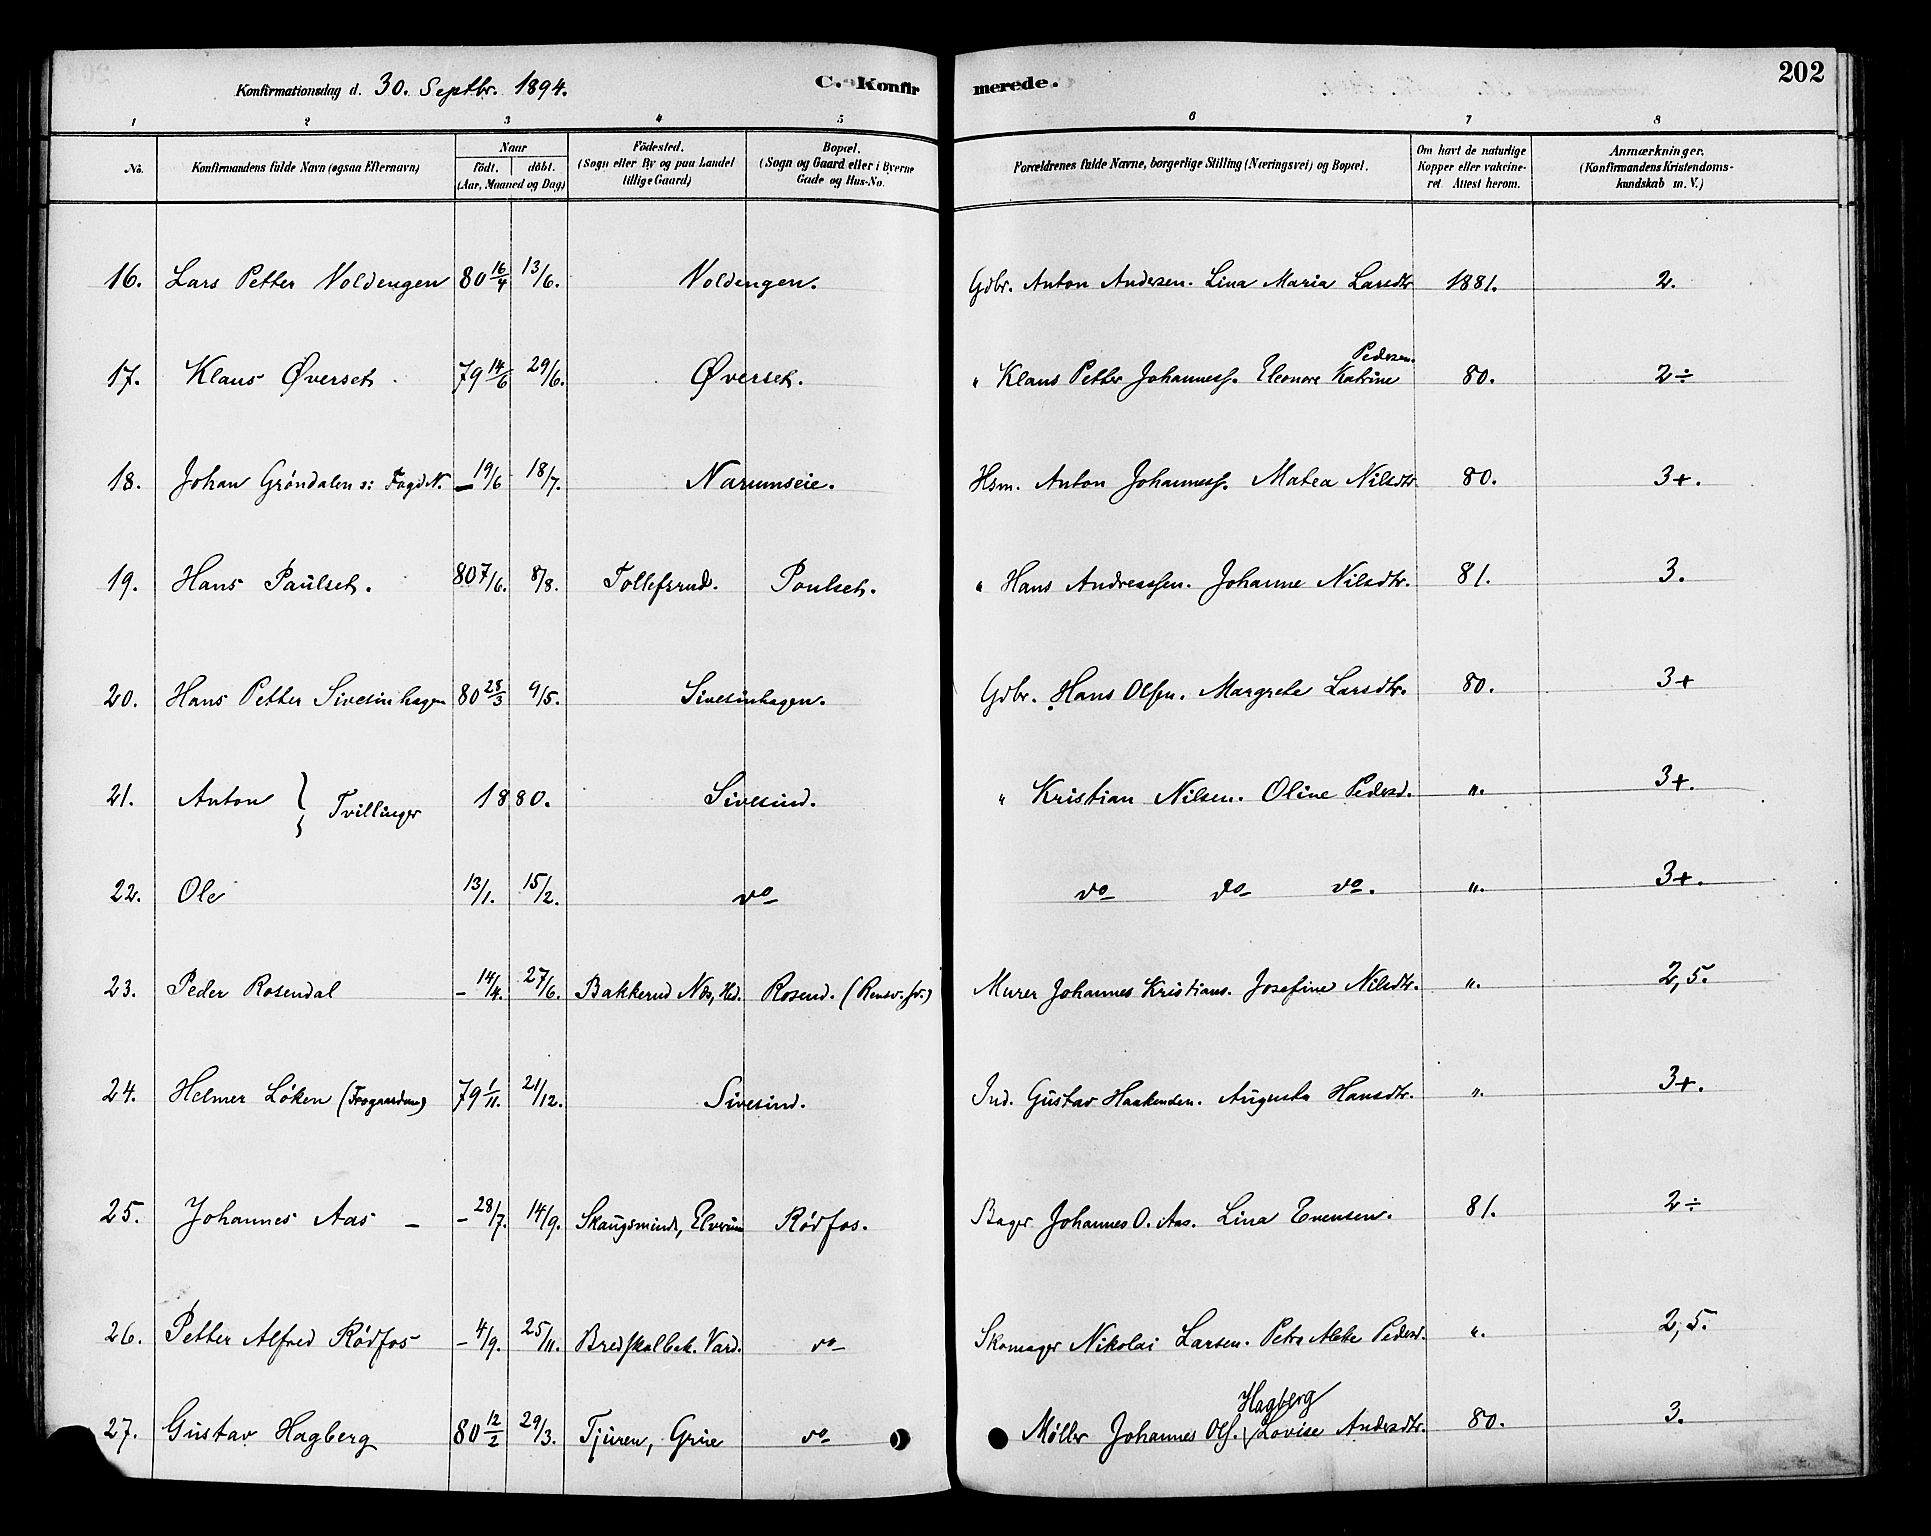 202
Konfirmationsdag d. 30. Septbr. 1894.
C. Konfirmerede.
1 2 3 4 5 6 7 8
No. Konfirmandens fulde Navn (ogsaa Efternavn) Naar Födt. döbt. (Aar, Maaned og Dag) Födested. (Sogn eller By og paa Landet tillige Gaard) Bopæl. (Sogn og Gaard eller i Byerne Gade og Hus-No. Forældrenes fulde Navne, borgerlige Stilling (Næringsvei) og Bopæl. Om havt de naturlige Kopper eller vakcineret. Attest herom. Anmærkninger. (Konfirmandens Kristendomskundskab m. V.)
16. Lars Petter Voldengen 80 16/4 13/6. Voldengen. Gdbr. Anton Andersen. Lina Maria Larsdtr 1881. 2.
17. Klaus Øverset 79 14/6 29/6. Øverset. " Klaus Petter Johanness. Eleonore Katrine Pedersen. 80. 2÷
18. Johan Gröndalen o: N. – 19/6 18/7. Narumseie. Hsm. Anton Johanness. Matea Nilsdtr 80. 3+.
19. Hans Paulset. 80 7/6. 8/8. Tollefsrud. Poulset. " Hans Andreassen. Johanne Nilsdtr. 81. 3.
20. Hans Petter Sivesinhagen 80 28/3 9/5. Sivesinhagen. Gdbr. Hans Olsen. Margrete Larsdtr. 80. 3+
21. Anton } Tvillinger 1880. Sivesind. " Kristian Nilsen. Oline Pedersd. ". 3+.
22. Ole 13/1. 15/2. do do do do. ". 3+.
23. Peder Rosendal – 14/4. 27/6. Bakkerud Næs, Hed. Rosend. Murer Johannes Kristians. Josefine Nilsdtr. ". 2,5.
24. Helmer Löken 79 1/11. 21/12. Sivesind. Ind. Gustav Haakensen. Augusta Hansdtr. ". 3+.
25. Johannes Aas – – 28/7. 14/9. Skaugsminde, Elverum Rödfos. Bager Johannes O. Aas. Lina Evensen. 81. 2÷
26. Petter Alfred Rödfos – 4/9. 25/11. Vard. do Skomager Nikolai Larsen. Petra Pedersd. ". 2,5.
27. Gustav Hagberg 80 12/2 29/3. Tjuren, Grue do Möller Johannes Ols. Hagberg Lovise Andersdtr. 80. 3.